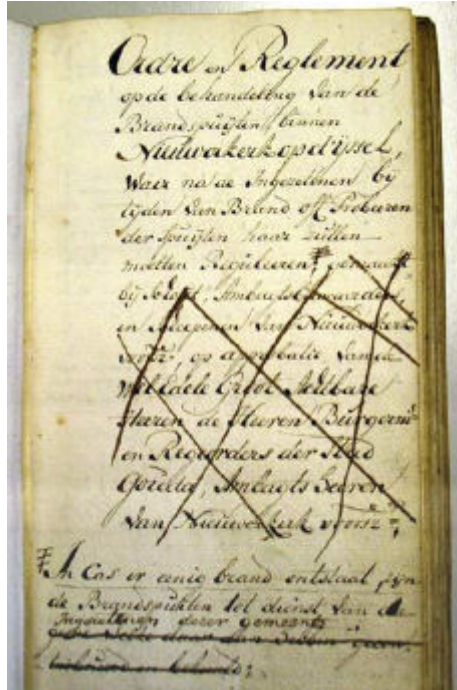 Ordre en Reglement
op de behandeling van de
Brandspuijten, binnen
Nieuwerkerk op d'ijssel,
Waar na de Ingezetenen bij
tijden van Brand off Probeeren
der spuijten haar zullen
moeten Reguleeren, gemaakt
bij Schout, Ambagtsbewaarders,
en Scheepenen van Nieuwerkerk
voorz: op approbatie van de
Wel Edele Groot Achtbare
Heeren de Heeren Burgerm:
en Regeerders der Stad
Gouda, Ambagts Heeren
van Nieuwerkerk voorsz:
In Cas er eenig brand ontstaat zijn
de Brandspuijten tot dienst van de
Ingezetenen dezer gemeente